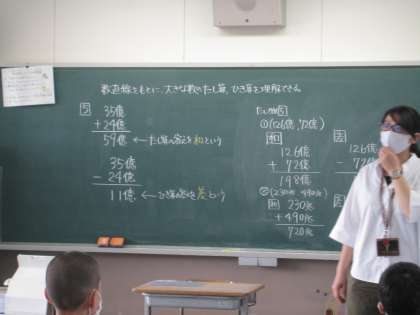 数直線をもとに、大きな数のたし算、ひき算を理解できる。
35億
+ 24億
59億 ← たし算の答えを和という
35億
- 24億
11億 ← ひき算の答えを差という
① (126億, 72億)
和
126億
+ 72億
198億
② (230兆, 490兆)
和 230兆
+ 490兆
720兆
差
126億
- 72